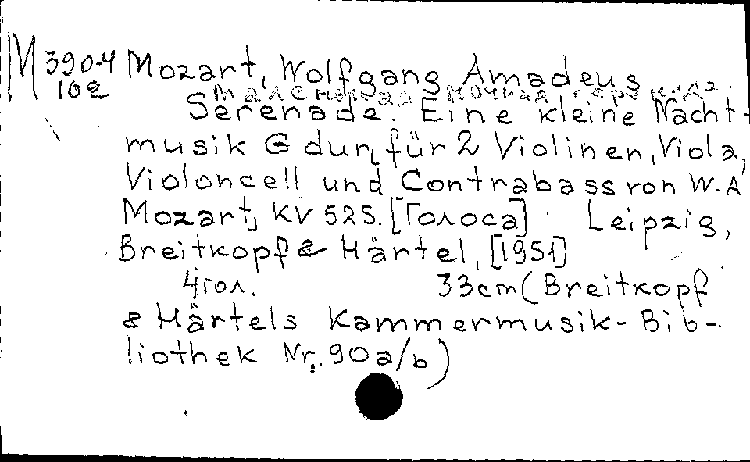 М 390-4 Mozart, Wolfgang Amadeus
10e Маленькая ночная серенада.
Serenade. Eine kleine Nacht-
musik G dur, für 2 Violinen, Viola,
Violoncell und Contrabass von W.A
Mozart, KV 525. [Голоса] Leipzig,
Breitkopf & Härtel, [1951]
4 гол. 33cm (Breitkopf
& Härtels Kammermusik-Bib-
liothek Nr. 90 a/b)